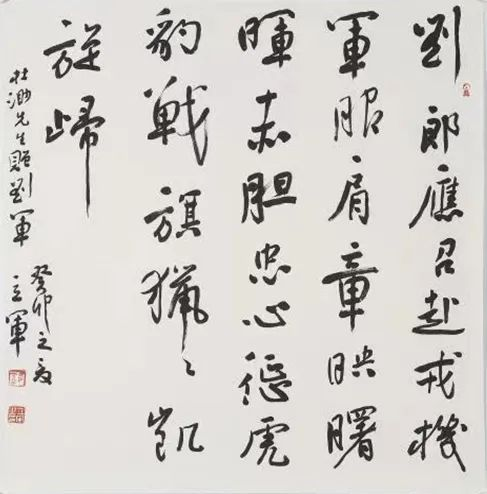 劉郎應召赴戎機
軍服肩章映曙
暉赤胆忠心惩虎
豹戰旗獵〻凱
旋歸
杜先生劉軍
癸卯之夏
立軍